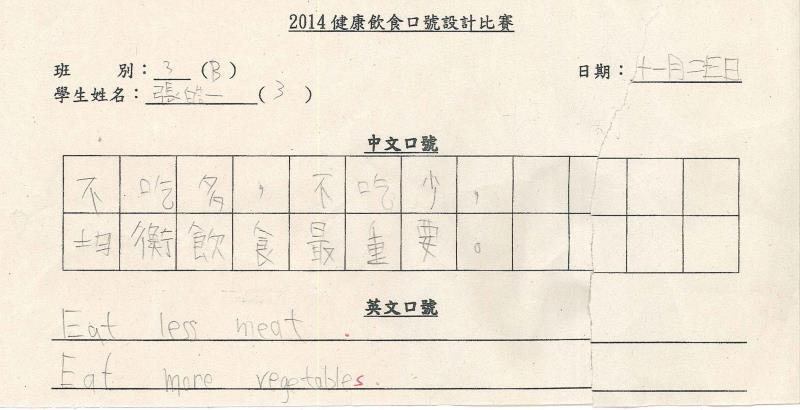 2014健康飲食口號設計比賽
班 別：3 (B)
日期：十一月二十五日
學生姓名：張皓一 (3)
中文口號
不吃多，不吃少，
均衡飲食最重要。
英文口號
Eat less meat.
Eat more vegetables.